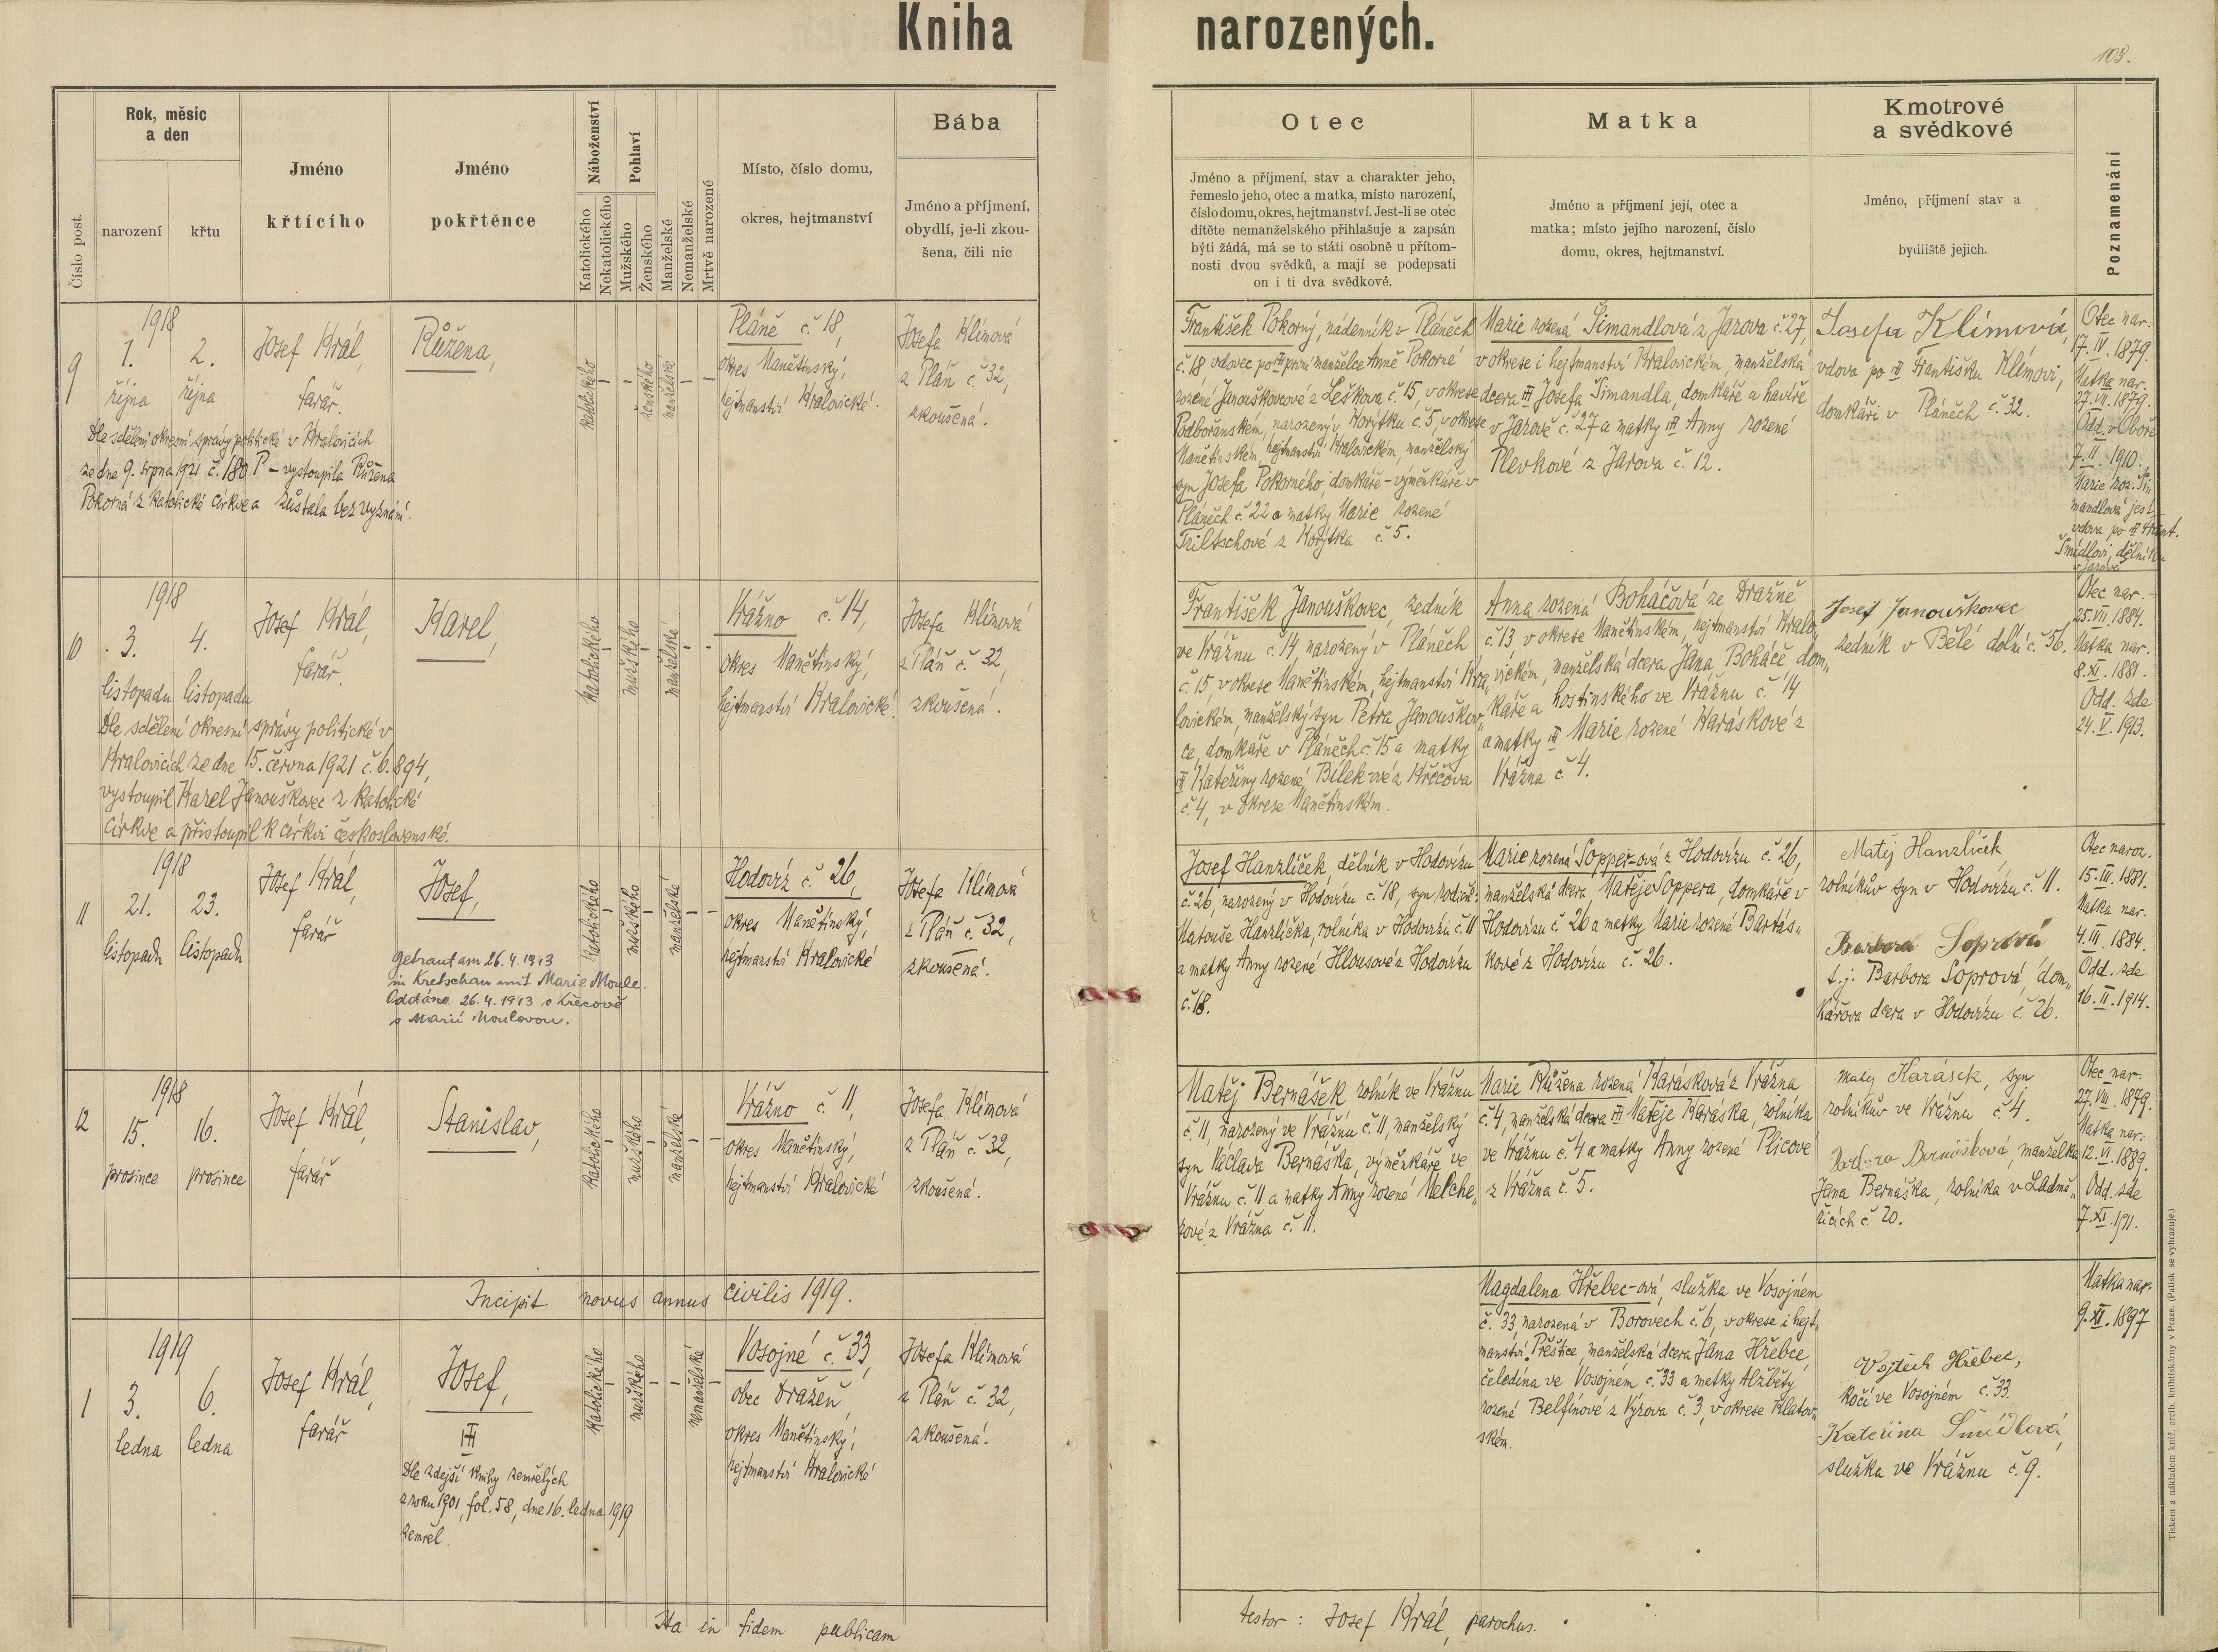 Kniha narozených.
103.
Číslo post.
Rok, měsíc
a den
narození
křtu
Jméno
křtícího
Jméno
pokřtěnce
Náboženství
Katolického
Nekatolického
Pohlaví
Mužského
Ženského
Manželské
Nemanželské
Mrtvě narozené
Místo, číslo domu,
okres, hejtmanství
Bába
Jméno a příjmení,
obydlí, je-li zkou-
šena, čili nic
Otec
Jméno a příjmení, stav a charakter jeho,
řemeslo jeho, otec a matka, místo narození,
číslo domu, okres, hejtmanství. Jest-li se otec
dítěte nemanželského přihlašuje a zapsán
býti žádá, má se to státi osobně u přítom-
nosti dvou svědků, a mají se podepsati
on i ti dva svědkové.
Matka
Jméno a příjmení její, otec a
matka; místo jejího narození, číslo
domu, okres, hejtmanství.
Kmotrové
a svědkové
Jméno, příjmení stav a
bydliště jejich.
Poznamenání
9
1918
1.
října
2.
října
Josef Král,
farář.
Růžena,
Dle sdělení okresní správy politické v Kralovicích
ze dne 9. srpna 1921 č. 180 P – vystoupila Růžena
Pokorná z katolické církve a zůstala bez vyznání.
katolického
–
–
ženského
manželské
–
–
Pláně č. 18,
okres Manětínský,
hejtmanství Kralovické.
Josefa Klímová
z Pláň č. 32,
zkoušená.
František Pokorný, nádenník v Pláněch
č. 18 vdovec po první manželce Anně Pokorné
rozené Janouškovcové z Leškova č. 15, v okrese
Podbořanském, narozený v Korýtku č. 5, v okrese
Manětínském, hejtmanství Kralovickém, manželský
syn Josefa Pokorného, domkáře-výměnkáře v
Pláněch č. 22 a matky Marie rozené
Triltschové z Korýtka č. 5.
Marie rozená Šimandlová z Jarova č. 27,
v okrese i hejtmanství Kralovickém, manželská
dcera Josefa Šimandla, domkáře a havíře
v Jarově č. 27 a matky Anny rozené
Plevkové z Jarova č. 12.
Josefa Klímová,
vdova po Františku Klímovi,
domkáři v Pláněch č. 32.
Otec nar.
17. IV. 1879.
Matka nar.
27. VII. 1879.
Odd. v Oboře
7. II. 1910.
Marie roz. Ši-
mandlová jest
vdova po Frant.
Šmídlovi, dělníku
v Jarově
10
1918
3.
listopadu
4.
listopadu
Josef Král,
farář.
Karel,
Dle sdělení okresní správy politické v
Kralovicích ze dne 15. června 1921 č. 6.894,
vystoupil Karel Janouškovec z katolické
církve a přistoupil k církvi československé.
katolického
–
mužského
–
manželské
–
–
Vrážno č. 14,
okres Manětínský,
hejtmanství Kralovické.
Josefa Klímová
z Pláň č. 32,
zkoušená.
František Janouškovec, zedník
ve Vrážnu č. 14 narozený v Pláněch
č. 15, v okrese Manětínském, hejtmanství Kra„
lovickém, manželský syn Petra Janouškov„
ce, domkáře v Pláněch č. 15 a matky
Kateřiny rozené Bílek-ové z Křečova
č. 4, v okrese Manětínském.
Anna rozená Boháčová ze Dražně
č. 13, v okrese Manětínském, hejtmanství Kralo„
vickém, manželská dcera Jana Boháče dom„
káře a hostinského ve Vrážnu č. 14
a matky Marie rozené Karáskové z
Vrážna č. 4.
Josef Janouškovec
zedník v Bělé dolní č. 56.
Otec nar.
25. VII. 1884.
Matka nar.
8. XI. 1881.
Odd. zde
24. V. 1913.
11
1918
21.
listopadu
23.
listopadu
Josef Král,
farář
Josef,
Getraut am 26.4.1943
in Kretschau mit Marie Moule.
Oddáne 26.4.1943 v Křečově
s Marií Moulovou.
katolického
–
mužského
–
manželské
–
–
Hodovíz č. 26,
okres Manětínský,
hejtmanství Kralovické
Josefa Klímová
z Pláň č. 32,
zkoušená.
Josef Hanzlíček, dělník v Hodovízu
č. 26, narozený v Hodovízu č. 18, syn rodičů:
Matouše Hanzlíčka, rolníka v Hodovízu č. 11
a matky Anny rozené Hlousové z Hodovízu
č. 18.
Marie rozená Sopper-ová z Hodovízu č. 26,
manželská dcera Matěje Soppera, domkáře v
Hodovízu č. 26 a matky Marie rozené Bartás„
kové z Hodovízu č. 26.
Matěj Hanzlíček,
rolníkův syn v Hodovízu č. 11.
Barbora Soprová
t.j. Barbora Soprová, dom„
kářova dcera v Hodovízu č. 26.
Otec naroz.
15. III. 1881.
Matka nar.
4. III. 1884.
Odd. zde
16. II. 1914.
12
1918
15.
prosince
16.
prosince
Josef Král,
farář
Stanislav,
katolického
–
mužského
–
manželské
–
–
Vrážno č. 11,
okres Manětínský,
hejtmanství Kralovické
Josefa Klímová
z Pláň č. 32,
zkoušená.
Matěj Bernášek rolník ve Vrážnu
č. 11, narozený ve Vrážnu č. 11, manželský
syn Václava Bernáška, výměnkáře ve
Vrážnu č. 11 a matky Anny rozené Melche„
rové z Vrážna č. 11.
Marie Růžena rozená Karásková z Vrážna
č. 4, manželská dcera Matěje Karáska, rolníka
ve Vrážnu č. 4 a matky Anny rozené Plicové
z Vrážna č. 5.
Matěj Karásek, syn
rolníkův ve Vrážnu č. 4.
Barbora Bernášková, manželka
Jana Bernáška, rolníka v Ladmě„
řicích č. 20.
Otec nar.
27. VIII. 1879.
Matka nar.:
12. VI. 1889.
Odd. zde
7. XI. 1911.
Incipit novus annus civilis 1919.
1
1919
3.
ledna
6.
ledna
Josef Král,
farář
Josef,
Dle zdejší knihy zemřelých
z roku 1901, fol. 58, dne 16. ledna 1919
zemřel.
katolického
–
mužského
–
–
nemanželské
–
Vosojné č. 33,
obec Dražeň,
okres Manětínský,
hejtmanství Kralovické
Josefa Klímová
z Pláň č. 32,
zkoušená.
Magdalena Hřebec-ová, služka ve Vosojném
č. 33, narozená v Borovech č. 6, v okrese i hejt„
manství Přeštice, manželská dcera Jana Hřebce,
čeledína ve Vosojném č. 33 a matky Alžběty
rozené Belfínové z Výrova č. 3, v okrese Klatov„
ském.
Vojtěch Hřebec,
kočí ve Vosojném č. 33.
Kateřina Šmídlová,
služka ve Vrážnu č. 9.
Matka nar.
9. XI. 1897
Ita in fidem publicam
testor: Josef Král, parochus.
Tiskem a nákladem kníž. arcib. knihtiskárny v Praze. (Patisk se vyhrazuje.)